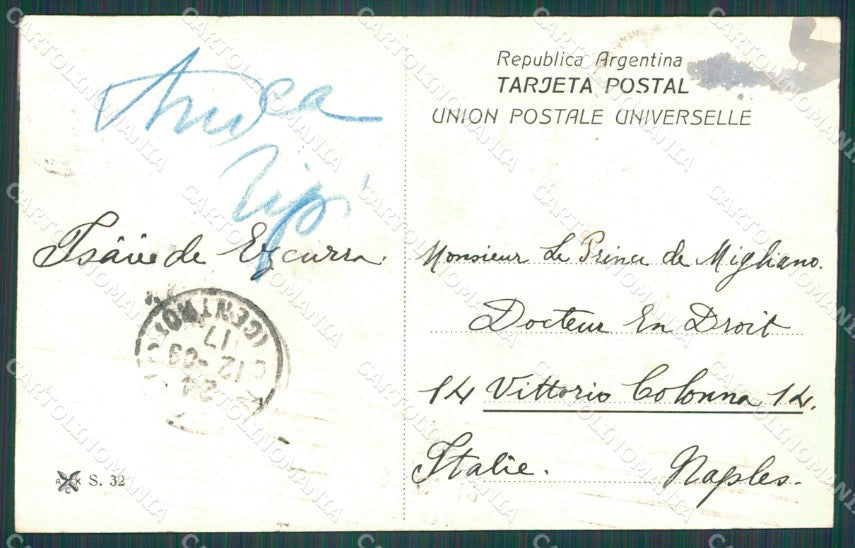 Republica Argentina
TARJETA POSTAL
UNION POSTALE UNIVERSELLE
Andrea
de Ezcurra.
Monsieur Le Prince de Migliano.
Docteur En Droit
14 Vittorio Colonna 14.
Italie. Naples.
(CENTRO)
17
12-03
24
S. 32
CARTOLINOMANIA